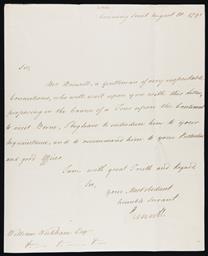 Downing Street August 18. 179
Sir,
Mr. Boswell, a gentleman of very respectable
Connections, who will wait upon you with this letter,
proposing in the course of a Tour upon the Continent
to visit Berne, I beg leave to introduce him to your
Acquaintance, and to recommend him to your Protection
and good Offices.
I am with great Truth and Regard,
Sir,
Your Most obedient
humble Servant
Grenville
William Wickham Esqr.